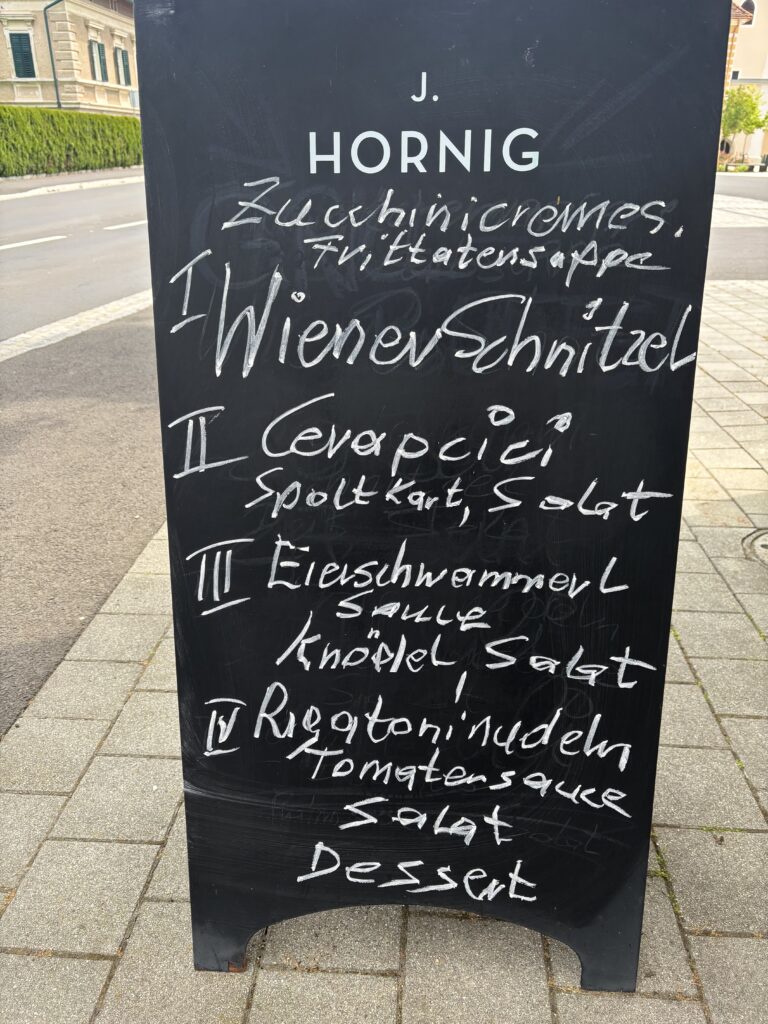 J.
HORNIG
Zucchinicremes.
Frittatensuppe
I Wiener Schnitzel
II Cevapcici
Spoltkart, Salat
III Eierschwammerl
Sauce
Knödel, Salat
IV Rigatoninudeln
Tomatensauce
Salat
Dessert